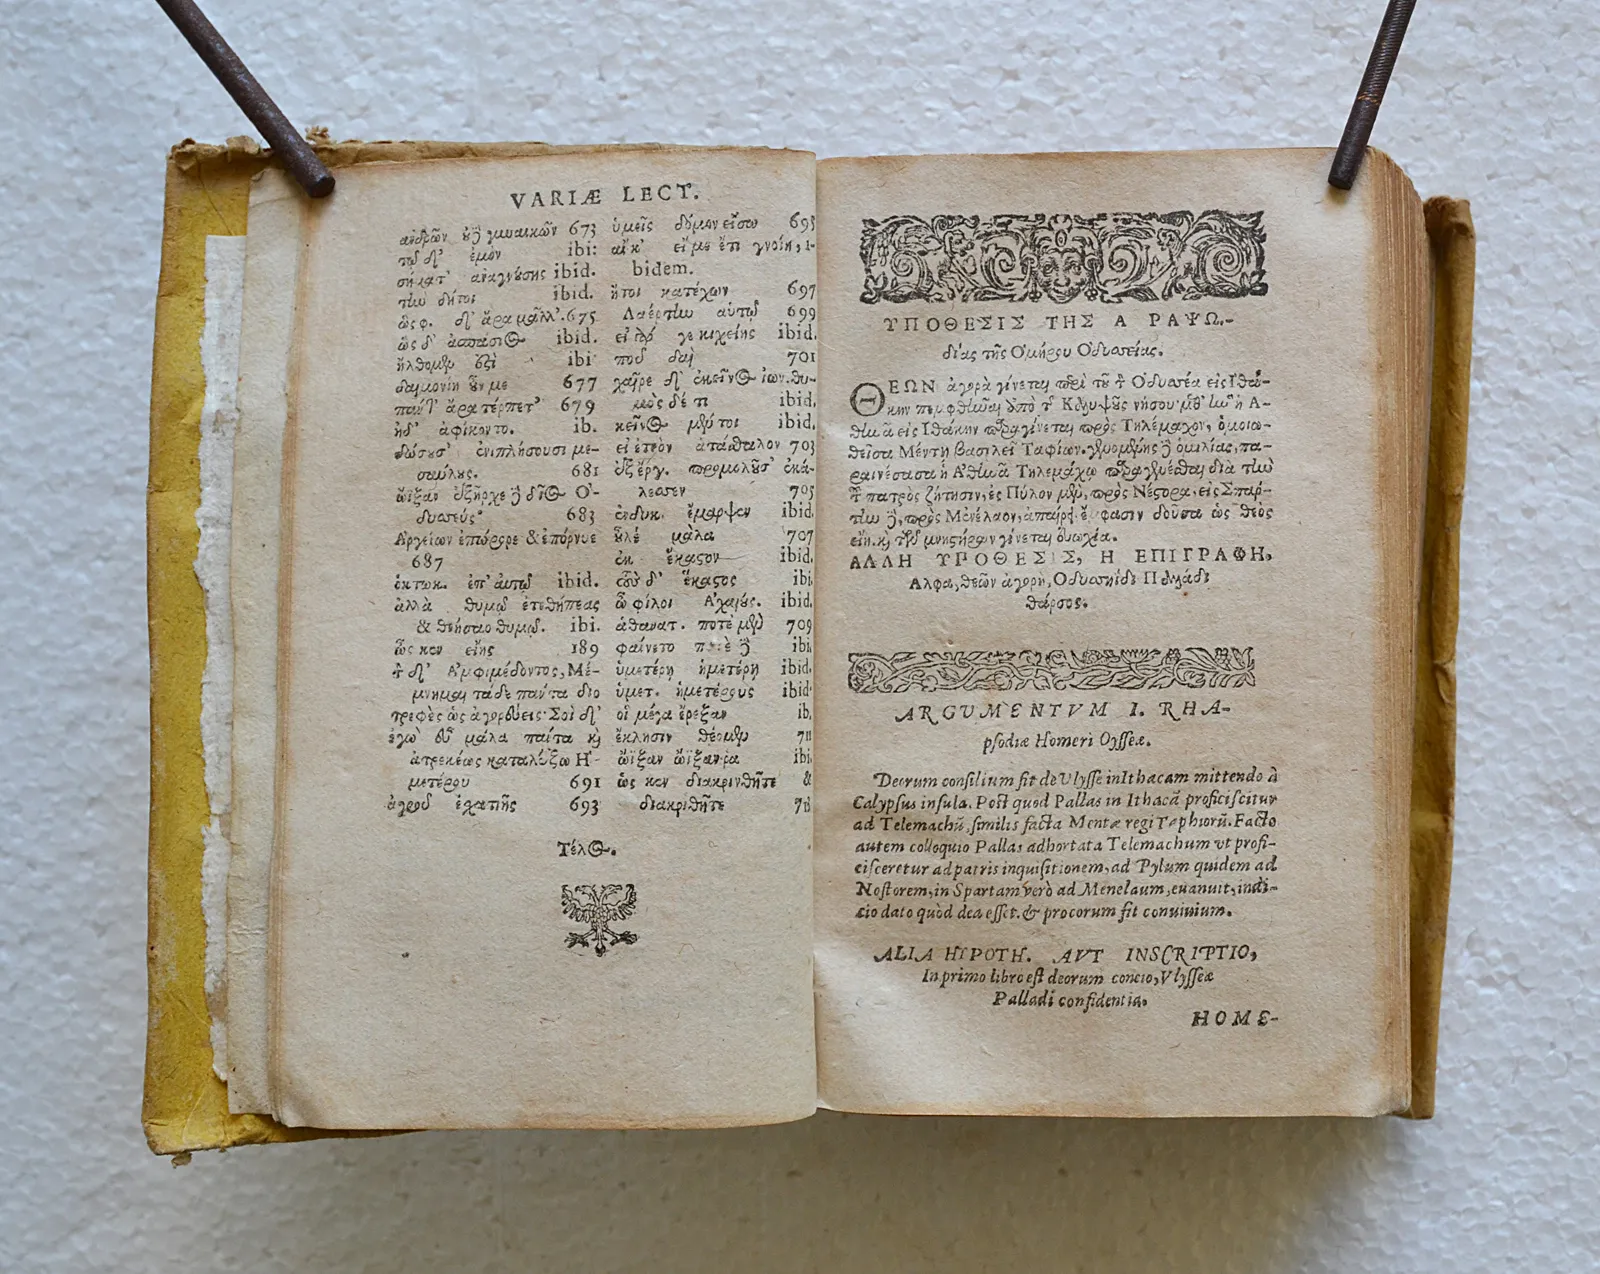 VARIÆ LECT.
ἀνδρῶν ἠδὲ γυναικῶν 673
τῷ δ' ἐμὸν ibi:
σήματ' ἀναγνούσης ibid.
τὴν δήτοι ibid.
ὣς φ. δ' ἄρα μᾶλλ'. 675
ὣς δ' ἀσπάσι⊙ ibid.
ἤλθομεν ἐπὶ ibi
δαιμονίη οὖν με 677
παῦσ' ἄρα τέρπετ' 679
ἠδ' ἀφίκοντο. ib.
δώσουσ' ἐνιπλήσουσι με-
σαύλους. 681
ὤϊξαν ἐξῆρχε δὲ δῖ⊙ Ὀ-
δυσσεύς 683
Ἀργείων ἐπόρορε & ἐπόρνυε
687
ὀκτωκ. ἐπ' αὐτῷ ibid.
ἀλλὰ θυμῷ ἐτεθήπεας
& θνήσαιο θυμῷ. ibi.
ὥς κεν εἴης 189
τ δ' Ἀμφιμέδοντος, Μέ-
μνημαι τάδε πάντα διο
τρεφὲς ὡς ἀγορεύεις· Σοὶ δ'
ἐγὼ εὖ μάλα πάντα καὶ
ἀτρεκέως καταλέξω Ἡ-
μετέρου 691
ἀγροῦ ἐχατιῆς 693
ὑμεῖς δόμον εἴσω 695
αἴκ' εἴ με ἔτι γνοίη, i-
bidem.
ἤτοι κατέχων 697
Λαέρτην αὐτῷ 699
εἰ γάρ γε κιχείης ibid.
ποῦ δαὶ 701
χαῖρε δ' ἐκεῖν⊙ ἰων. θυ-
μὸς δέ τι ibid.
κεῖν⊙ μέν τοι ibid.
εἰ ἐτεὸν ἀτάσθαλον 703
ἐξ ἔργ. προμολοῦσ' ἐκά-
λεσσεν 705
ἐνδυκ. ἔμαρψεν ibid.
οὖλέ μάλα 707
ἐκ ἕκαστον ibid.
σοῦ δ' ἕκαστος ibi.
ὦ φίλοι Ἀχαιούς. ibid.
ἀθανατ. ποτὲ μὲν 709
φαίνετο ποτὲ δὲ ibi.
ὑμετέρη ἡμετέρη ibid.
ὑμετ. ἡμετέρους ibid.
οἳ μέγα ἔρεξαν ib.
ἔκλησιν θέομεν 711
ὤϊξαν ὤϊξάν ῥα ibi.
ὥς κεν διακρινθῆτε &
διακριθῆτε
Τέλ⊙.
ΥΠΟΘΕΣΙΣ ΤΗΣ Α ΡΑΨΩ-
δίας τῆς Ὁμήρου Ὀδυσσείας.
ΘΕΩΝ ἀγορὰ γίνεται περὶ τοῦ τὸν Ὀδυσσέα εἰς Ἰθά-
κην πεμφθῆναι ἀπὸ τῆς Καλυψοῦς νήσου· μεθ' ἣν ἡ Ἀ-
θηνᾶ εἰς Ἰθάκην παραγίνεται πρὸς Τηλέμαχον, ὁμοιω-
θεῖσα Μέντῃ βασιλεῖ Ταφίων. γενομένης δὲ ὁμιλίας, πα-
ραινέσασα ἡ Ἀθηνᾶ Τηλεμάχῳ παραγενέσθαι διὰ τὴν
τοῦ πατρὸς ζήτησιν, ἐς Πύλον μὲν, πρὸς Νέστορα, εἰς Σπάρ-
την δὲ, πρὸς Μενέλαον, ἀπαίρει ἔμφασιν δοῦσα ὡς θεὸς
εἴη. καὶ τῶν μνηστήρων γίνεται εὐωχία.
ΑΛΛΗ ΥΠΟΘΕΣΙΣ, Η ΕΠΙΓΡΑΦΗ,
Αλφα, θεῶν ἀγορὴ, Ὀδυσσηΐδι Παλλάδι
θάρσος.
ARGVMENTVM I. RHA-
psodiæ Homeri Oyſſeæ.
Deorum conſilium fit de Vlyſſe in Ithacam mittendo à
Calypſus inſula. Poſt quod Pallas in Ithacã proficiſcitur
ad Telemachũ, ſimilis facta Mentæ regi Taphiorũ. Facto
autem colloquio Pallas adhortata Telemachum vt profi-
ciſceretur ad patris inquiſitionem, ad Pylum quidem ad
Noſtorem, in Spartam verò ad Menelaum, euanuit, indi-
cio dato quòd dea eſſet. & procorum fit conuiuium.
ALIA HYPOTH. AVT INSCRIPTIO,
In primo libro eſt deorum concio, Vlyſſeæ
Palladi confidentia.
HOME-